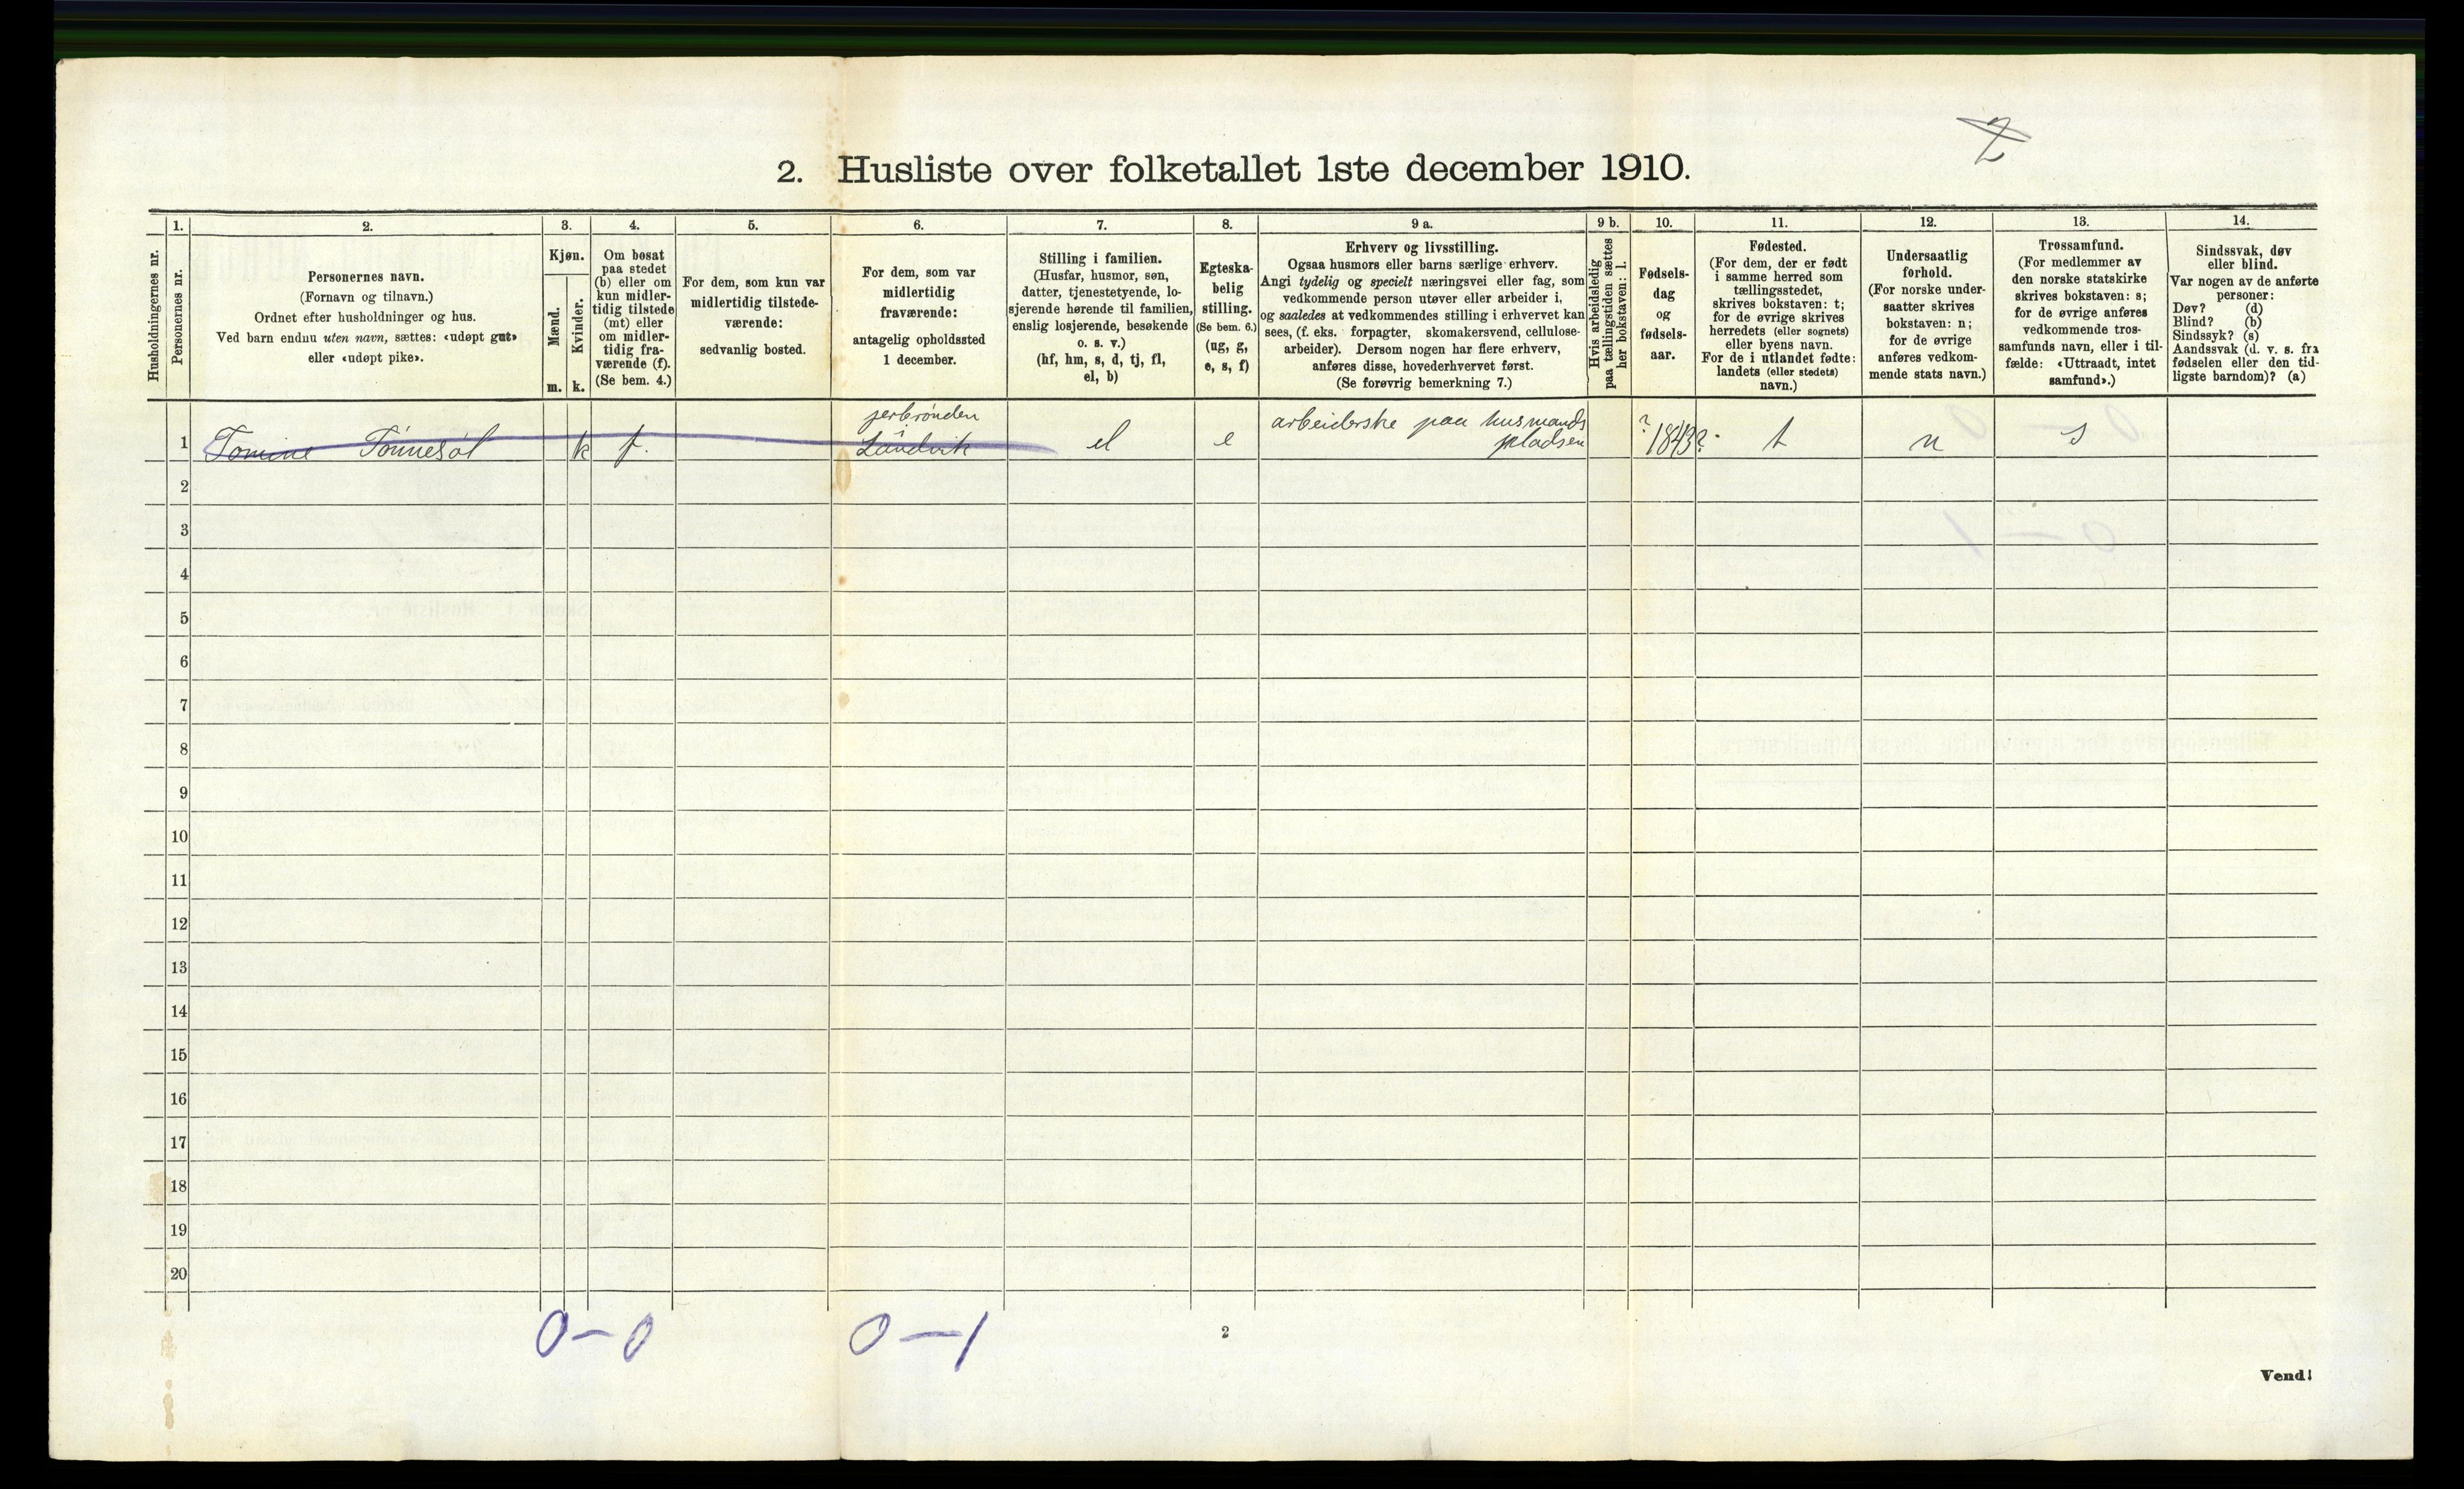 2. Husliste over folketallet 1ste december 1910.
Husholdningernes nr.
1.
Personernes nr.
2.
Personernes navn.
(Fornavn og tilnavn.)
Ordnet efter husholdninger og hus.
Ved barn endnu uten navn, sættes: «udøpt gut»
eller «udøpt pike».
3.
Kjøn.
Mænd.
m.
Kvinder.
k.
4.
Om bosat
paa stedet
(b) eller om
kun midler-
tidig tilstede
(mt) eller
om midler-
tidig fra-
værende (f).
(Se bem. 4.)
5.
For dem, som kun var
midlertidig tilstede-
værende:
sedvanlig bosted.
6.
For dem, som var
midlertidig
fraværende:
antagelig opholdssted
1 december.
7.
Stilling i familien.
(Husfar, husmor, søn,
datter, tjenestetyende, lo-
sjerende hørende til familien,
enslig losjerende, besøkende
o. s. v.)
(hf, hm, s, d, tj, fl,
el, b)
8.
Egteska-
belig
stilling.
(Se bem. 6.)
(ug, g,
e, s, f)
9 a.
Erhverv og livsstilling.
Ogsaa husmors eller barns særlige erhverv.
Angi tydelig og specielt næringsvei eller fag, som
vedkommende person utøver eller arbeider i,
og saaledes at vedkommendes stilling i erhvervet kan
sees, (f. eks. forpagter, skomakersvend, cellulose-
arbeider). Dersom nogen har flere erhverv,
anføres disse, hovederhvervet først.
(Se forøvrig bemerkning 7.)
9 b.
Hvis arbeidsledig
paa tællingstiden sættes
her bokstaven: l.
10.
Fødsels-
dag
og
fødsels-
aar.
11.
Fødested.
(For dem, der er født
i samme herred som
tællingsstedet,
skrives bokstaven: t;
for de øvrige skrives
herredets (eller sognets)
eller byens navn.
For de i utlandet fødte:
landets (eller stedets)
navn.)
12.
Undersaatlig
forhold.
(For norske under-
saatter skrives
bokstaven: n;
for de øvrige
anføres vedkom-
mende stats navn.)
13.
Trossamfund.
(For medlemmer av
den norske statskirke
skrives bokstaven: s;
for de øvrige anføres
vedkommende tros-
samfunds navn, eller i til-
fælde: «Uttraadt, intet
samfund».)
14.
Sindssvak, døv
eller blind.
Var nogen av de anførte
personer:
Døv? (d)
Blind? (b)
Sindssyk? (s)
Aandssvak (d. v. s. fra
fødselen eller den tid-
ligste barndom)? (a)
1 Tomine Tønnesøl k f.
i
Landvik el e arbeiderske paa husmands
pladsen ? 1843? t n s
2
3
4
5
6
7
8
9
10
11
12
13
14
15
16
17
18
19
20
0-0 0-1
2
Vend!